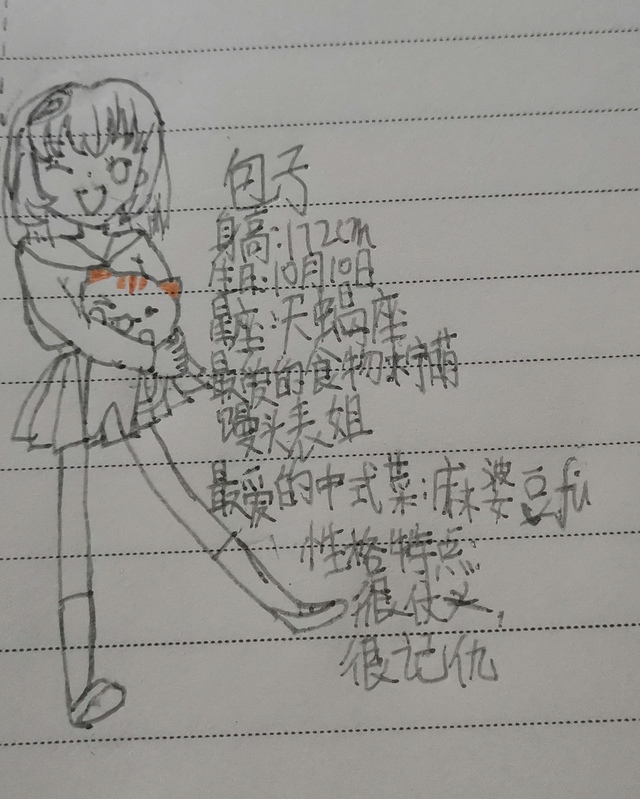 包子
身高:172cm
生日:10月10日
星座:天蝎座
最爱的食物:柠萌
馒头表姐
最爱的中式菜:麻婆豆fu
性格特点
很仗义,
很记仇